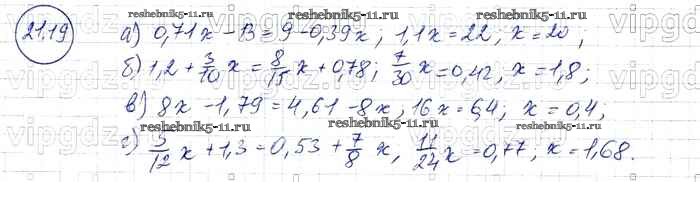 reshebnik5-11.ru reshebnik5-11.ru
21.19 а) 0,71x - 13 = 9 - 0,39x; 1,1x = 22; x = 20;
reshebnik5-11.ru
б) 1,2 + 3/10 x = 8/15 x + 0,78; 7/30 x = 0,42, x = 1,8;
в) 8x - 1,79 = 4,61 - 8x, 16x = 6,4; x = 0,4;
reshebnik5-11.ru reshebnik5-11.ru
г) 5/12 x + 1,3 = 0,53 + 7/8 x, 11/24 x = 0,77; x = 1,68.
reshebnik5-11.ru